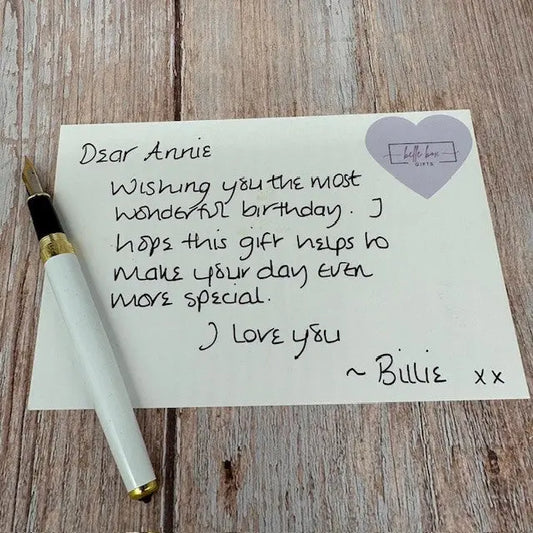 Dear Annie
belle box
GIFTS
Wishing you the most
wonderful birthday. I
hope this gift helps to
make your day even
more special.
I love you
~ Billie xx